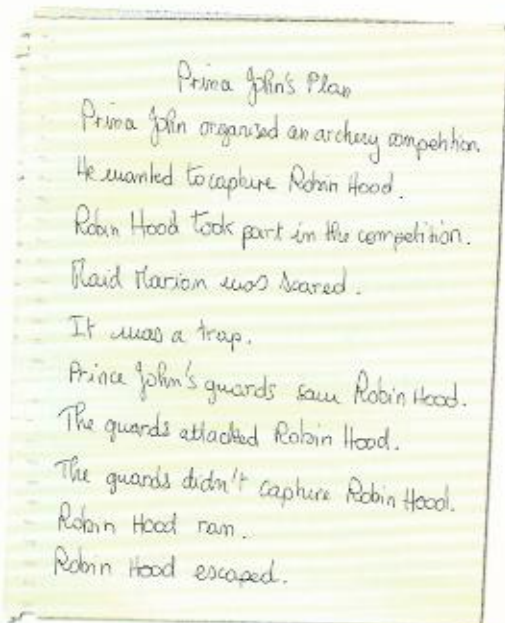 Prince John's Plan
Prince John organised an archery competition.
He wanted to capture Robin Hood.
Robin Hood took part in the competition.
Maid Marion was scared.
It was a trap.
Prince John's guards saw Robin Hood.
The guards attacked Robin Hood.
The guards didn't capture Robin Hood.
Robin Hood ran.
Robin Hood escaped.